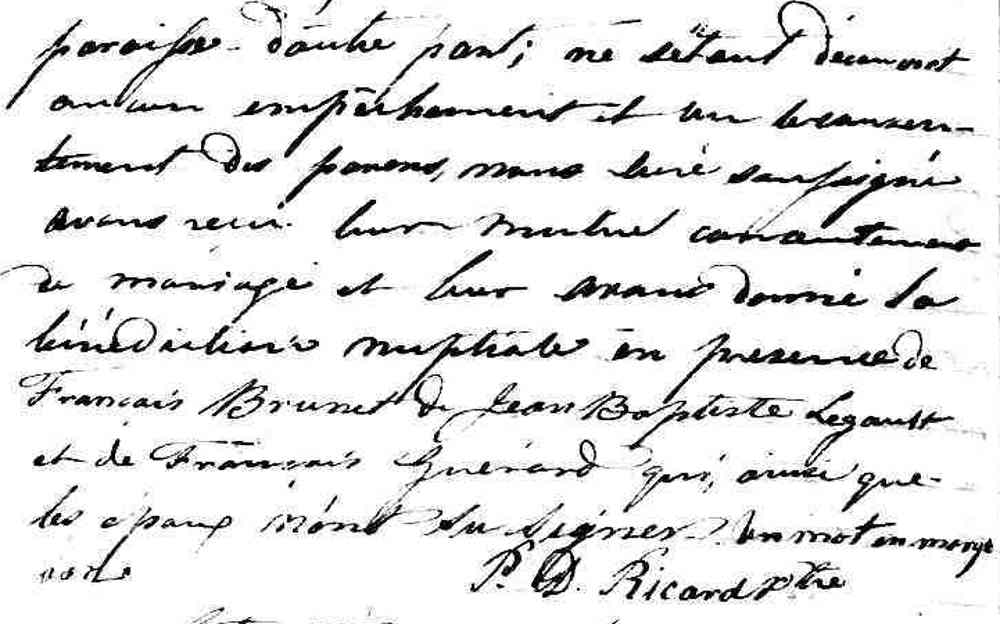 paroisse d'autre part; ne s'étant découvert
aucun empêchement et vu le consen-
tement des parens, nous curé soussigné
avons recu leur mutuel consentement
de mariage et leur avons donné la
bénédiction nuptiale en presence de
François Brunet de Jean Baptiste Legault
et de François Guérard qui, ainsi que
les epoux n'ont su signer. Un mot en marge
P. D. Ricard ptre